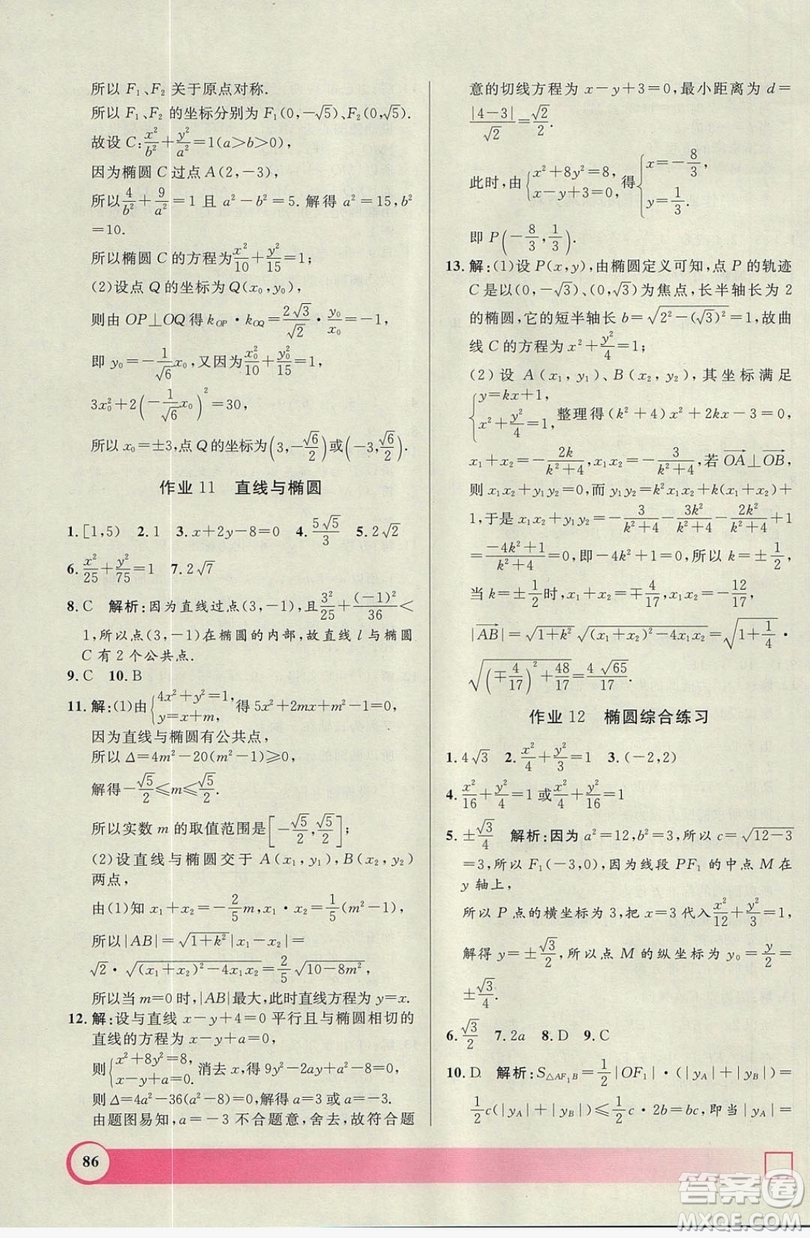 所以 F₁、F₂ 关于原点对称.
所以 F₁、F₂ 的坐标分别为 F₁(0,-√5)、F₂(0,√5).
故设 C:x²/b²+y²/a²=1(a>b>0),
因为椭圆 C 过点 A(2,-3),
所以4/b²+9/a²=1 且 a²-b²=5. 解得 a²=15,b²
=10.
所以椭圆 C 的方程为x²/10+y²/15=1;
(2)设点 Q 的坐标为 Q(x₀,y₀)
则由 OP⊥OQ 得 k_OP·k_OQ=2√3/√2·y₀/x₀=-1,
即 y₀=-1/√6 x₀,又因为x₀²/10+y₀²/15=1,
3x₀²+2(-1/√6 x₀)²=30,
所以 x₀=±3,点 Q 的坐标为(3,-√6/2)或(-3,√6/2).
作业 11 直线与椭圆
1.[1,5) 2.1 3.x+2y-8=0 4.5√5/3 5.2√2
6.x²/25+y²/75=1 7.2√7
8.C 解析:因为直线过点(3,-1),且3²/25+(-1)²/36<
1,所以点(3,-1)在椭圆的内部,故直线 l 与椭圆
C 有 2 个公共点.
9.C 10.B
11.解:(1)由{4x²+y²=1, y=x+m, 得 5x²+2mx+m²-1=0.
因为直线与椭圆有公共点,
所以 Δ=4m²-20(m²-1)≥0,
解得-√5/2≤m≤√5/2.
所以实数 m 的取值范围是[-√5/2,√5/2];
(2)设直线与椭圆交于 A(x₁,y₁),B(x₂,y₂)
两点,
由(1)知 x₁+x₂=-2/5m,x₁x₂=1/5(m²-1),
所以|AB|=√(1+k²)|x₁-x₂|=
√2·√((x₁+x₂)²-4x₁x₂)=2/5√(10-8m²),
所以当 m=0 时,|AB|最大,此时直线方程为 y=x.
12.解:设与直线 x-y+4=0 平行且与椭圆相切的
直线为 x-y+a=0,
则{x²+8y²=8, x-y+a=0, 消去 x,得 9y²-2ay+a²-8=0,
则 Δ=4a²-36(a²-8)=0,解得 a=3 或 a=-3.
由题图易知,a=-3 不合题意,舍去,故符合题
意的切线方程为 x-y+3=0,最小距离为 d=
|4-3|/√2=√2/2.
此时,由{x²+8y²=8, x-y+3=0, 得{x=-8/3, y=1/3.
即 P(-8/3,1/3).
13.解:(1)设 P(x,y),由椭圆定义可知,点 P 的轨迹
C 是以(0,-√3),(0,√3)为焦点,长半轴长为 2
的椭圆,它的短半轴长 b=√(2²-(√3)²)=1,故曲
线 C 的方程为 x²+y²/4=1;
(2) 设 A(x₁,y₁)、B(x₂,y₂),其坐标满足
{y=kx+1, x²+y²/4=1, 整理得(k²+4)x²+2kx-3=0,故
x₁+x₂=-2k/(k²+4),x₁x₂=-3/(k²+4). 若OA⊥OB,
则 x₁x₂+y₁y₂=0. 而 y₁y₂=k²x₁x₂+k(x₁+x₂)+
1,于是 x₁x₂+y₁y₂=-3/(k²+4)-3k²/(k²+4)-2k²/(k²+4)+1=
(-4k²+1)/(k²+4)=0,即-4k²+1=0,所以 k=±1/2,
当 k=±1/2时,x₁+x₂=∓4/17,x₁x₂=-12/17,
|AB|=√(1+k²)√((x₁+x₂)²-4x₁x₂)=√(1+1/4)·
√((∓4/17)²+48/17)=4√65/17.
作业 12 椭圆综合练习
1.4√3 2.x²/4+y²/3=1 3.(-2,2)
4.x²/16+y²/4=1 或x²/4+y²/16=1
5.±√3/4 解析:因为 a²=12,b²=3,所以 c=√(12-3)
=3,所以 F₁(-3,0),因为线段 PF₁ 的中点 M 在
y 轴上,
所以 P 点的横坐标为 3,把 x=3 代入x²/12+y²/3=1,
解得 y=±√3/2,所以点 M 的纵坐标为 y₀=y/2=
±√3/4.
6.√3/2 7.2a 8.D 9.C
10.D 解析:S△AF₁B=1/2|OF₁|·(|y_A|+|y_B|)=
1/2c(|y_A|+|y_B|)≤1/2c·2b=bc,即当|y_A|=
86
答案圈
MXQE.COM